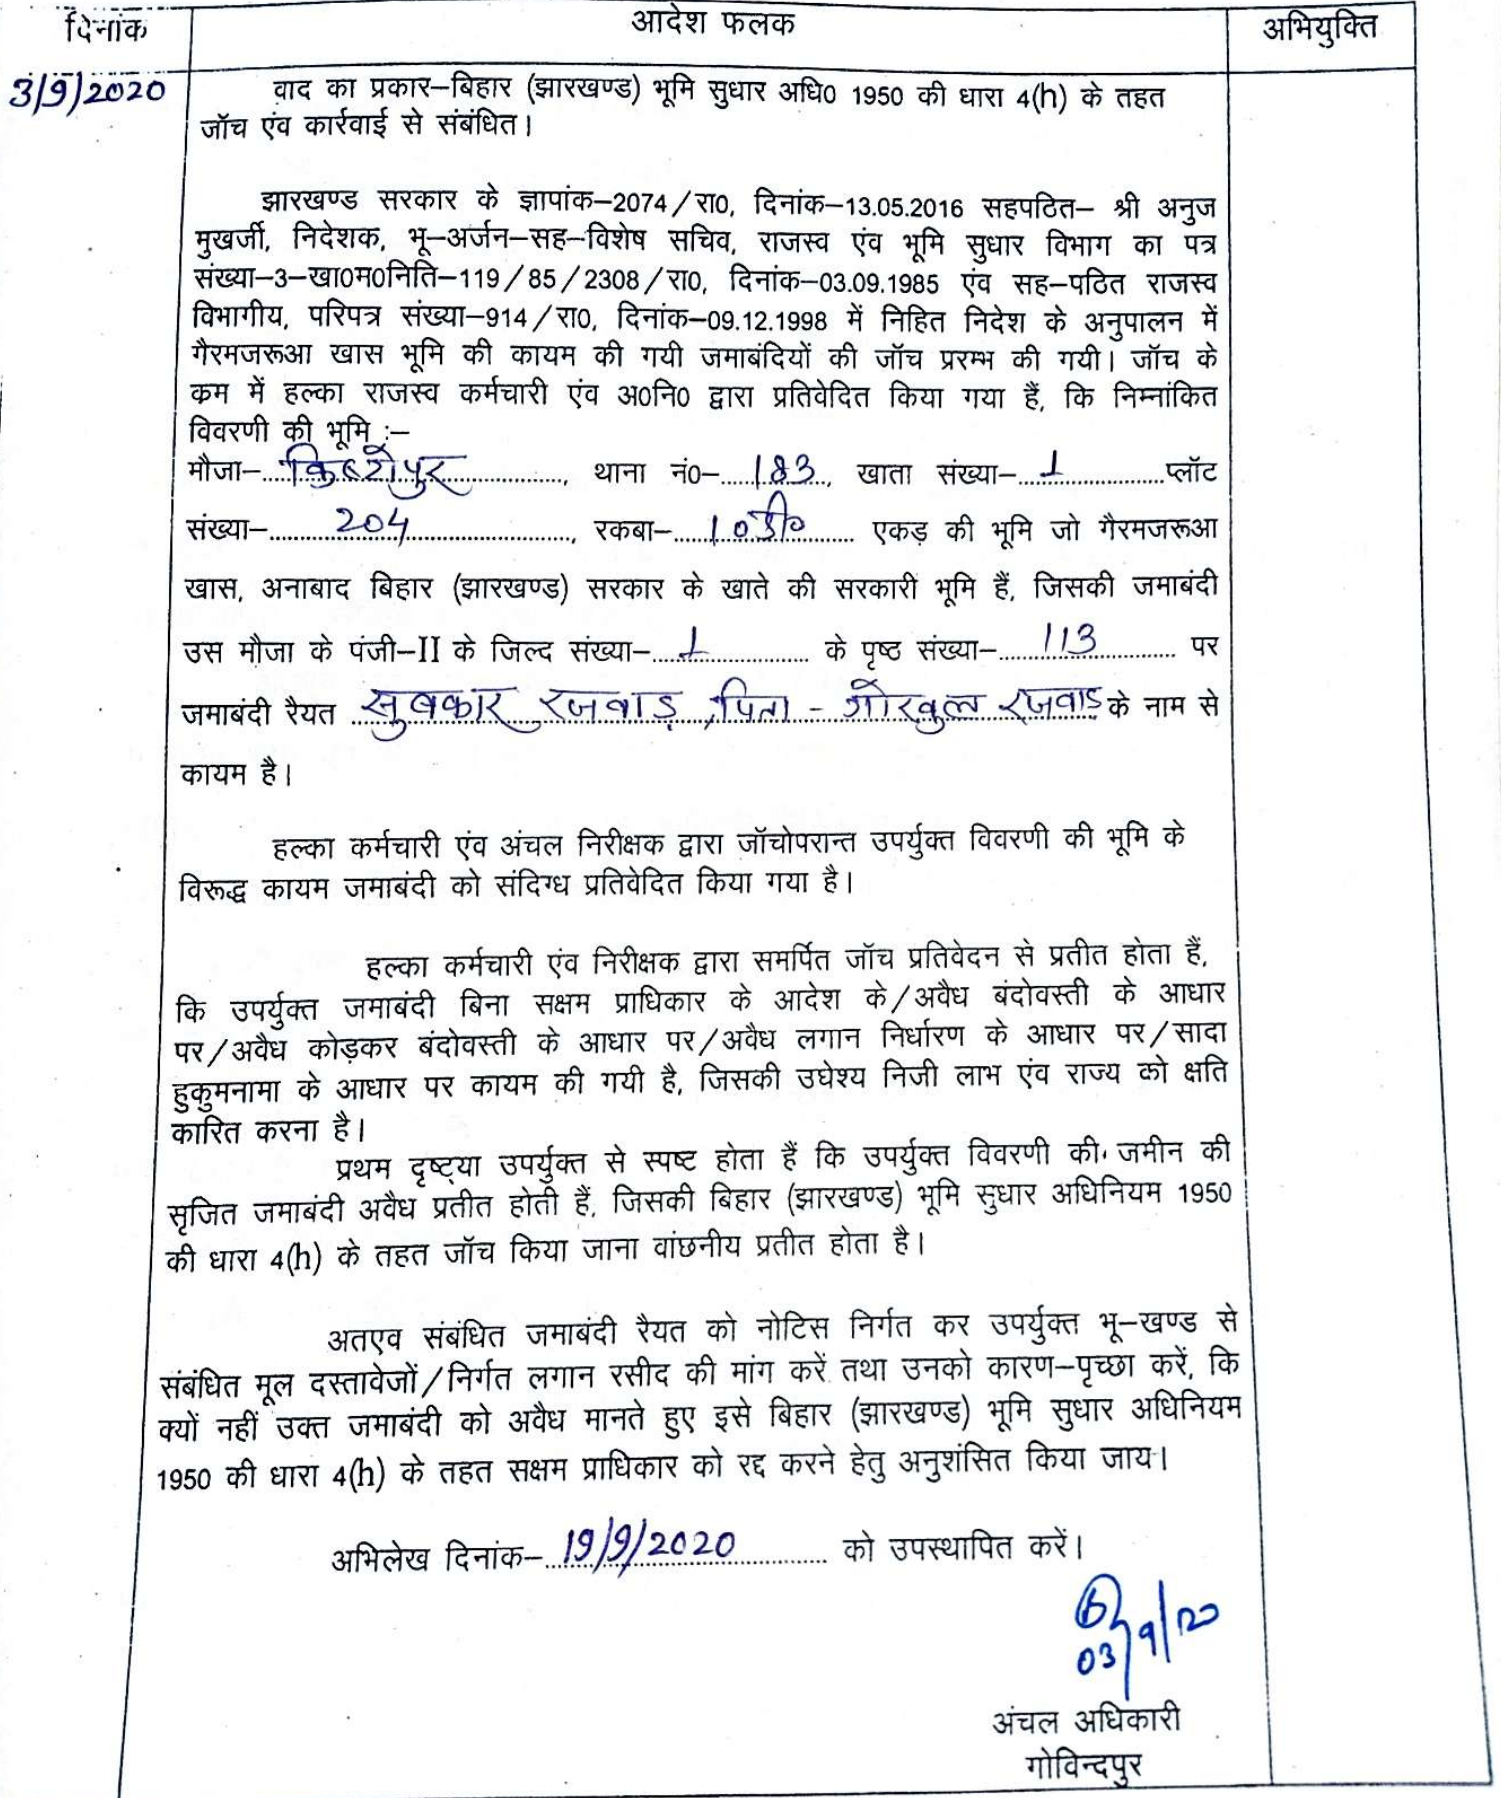 दिनांक आदेश फलक अभियुक्ति
3/9/2020 वाद का प्रकार–बिहार (झारखण्ड) भूमि सुधार अधि0 1950 की धारा 4(h) के तहत
जॉच एंव कार्रवाई से संबंधित।
झारखण्ड सरकार के ज्ञापांक–2074/रा0, दिनांक–13.05.2016 सहपठित– श्री अनुज
मुखर्जी, निदेशक, भू–अर्जन–सह–विशेष सचिव, राजस्व एंव भूमि सुधार विभाग का पत्र
संख्या–3–खा0म0निति–119/85/2308/रा0, दिनांक–03.09.1985 एंव सह–पठित राजस्व
विभागीय, परिपत्र संख्या–914/रा0, दिनांक–09.12.1998 में निहित निदेश के अनुपालन में
गैरमजरूआ खास भूमि की कायम की गयी जमाबंदियों की जॉच प्ररम्भ की गयी। जॉच के
कम में हल्का राजस्व कर्मचारी एंव अ0नि0 द्वारा प्रतिवेदित किया गया हैं, कि निम्नांकित
विवरणी की भूमि :–
मौजा–...................., थाना नं0–....183...., खाता संख्या–...1...............प्लॉट
संख्या–.......204..................., रकबा–....10डी0...... एकड़ की भूमि जो गैरमजरूआ
खास, अनाबाद बिहार (झारखण्ड) सरकार के खाते की सरकारी भूमि हैं, जिसकी जमाबंदी
उस मौजा के पंजी–II के जिल्द संख्या–...1............ के पृष्ठ संख्या–.....113.......... पर
जमाबंदी रैयत ... रजवाड़, पिता - गोखुल रजवाड़ के नाम से
कायम है।
हल्का कर्मचारी एंव अंचल निरीक्षक द्वारा जॉचोपरान्त उपर्युक्त विवरणी की भूमि के
विरूद्ध कायम जमाबंदी को संदिग्ध प्रतिवेदित किया गया है।
हल्का कर्मचारी एंव निरीक्षक द्वारा समर्पित जॉच प्रतिवेदन से प्रतीत होता हैं,
कि उपर्युक्त जमाबंदी बिना सक्षम प्राधिकार के आदेश के/अवैध बंदोवस्ती के आधार
पर/अवैध कोड़कर बंदोवस्ती के आधार पर/अवैध लगान निर्धारण के आधार पर/सादा
हुकुमनामा के आधार पर कायम की गयी है, जिसकी उघेश्य निजी लाभ एंव राज्य को क्षति
कारित करना है।
प्रथम दृष्ट्या उपर्युक्त से स्पष्ट होता हैं कि उपर्युक्त विवरणी की जमीन की
सृजित जमाबंदी अवैध प्रतीत होती हैं, जिसकी बिहार (झारखण्ड) भूमि सुधार अधिनियम 1950
की धारा 4(h) के तहत जॉच किया जाना वांछनीय प्रतीत होता है।
अतएव संबंधित जमाबंदी रैयत को नोटिस निर्गत कर उपर्युक्त भू–खण्ड से
संबंधित मूल दस्तावेजों/निर्गत लगान रसीद की मांग करें तथा उनको कारण–पृच्छा करें, कि
क्यों नहीं उक्त जमाबंदी को अवैध मानते हुए इसे बिहार (झारखण्ड) भूमि सुधार अधिनियम
1950 की धारा 4(h) के तहत सक्षम प्राधिकार को रद्द करने हेतु अनुशंसित किया जाय।
अभिलेख दिनांक–..19/9/2020............ को उपस्थापित करें।
03/9/20
अंचल अधिकारी
गोविन्दपुर